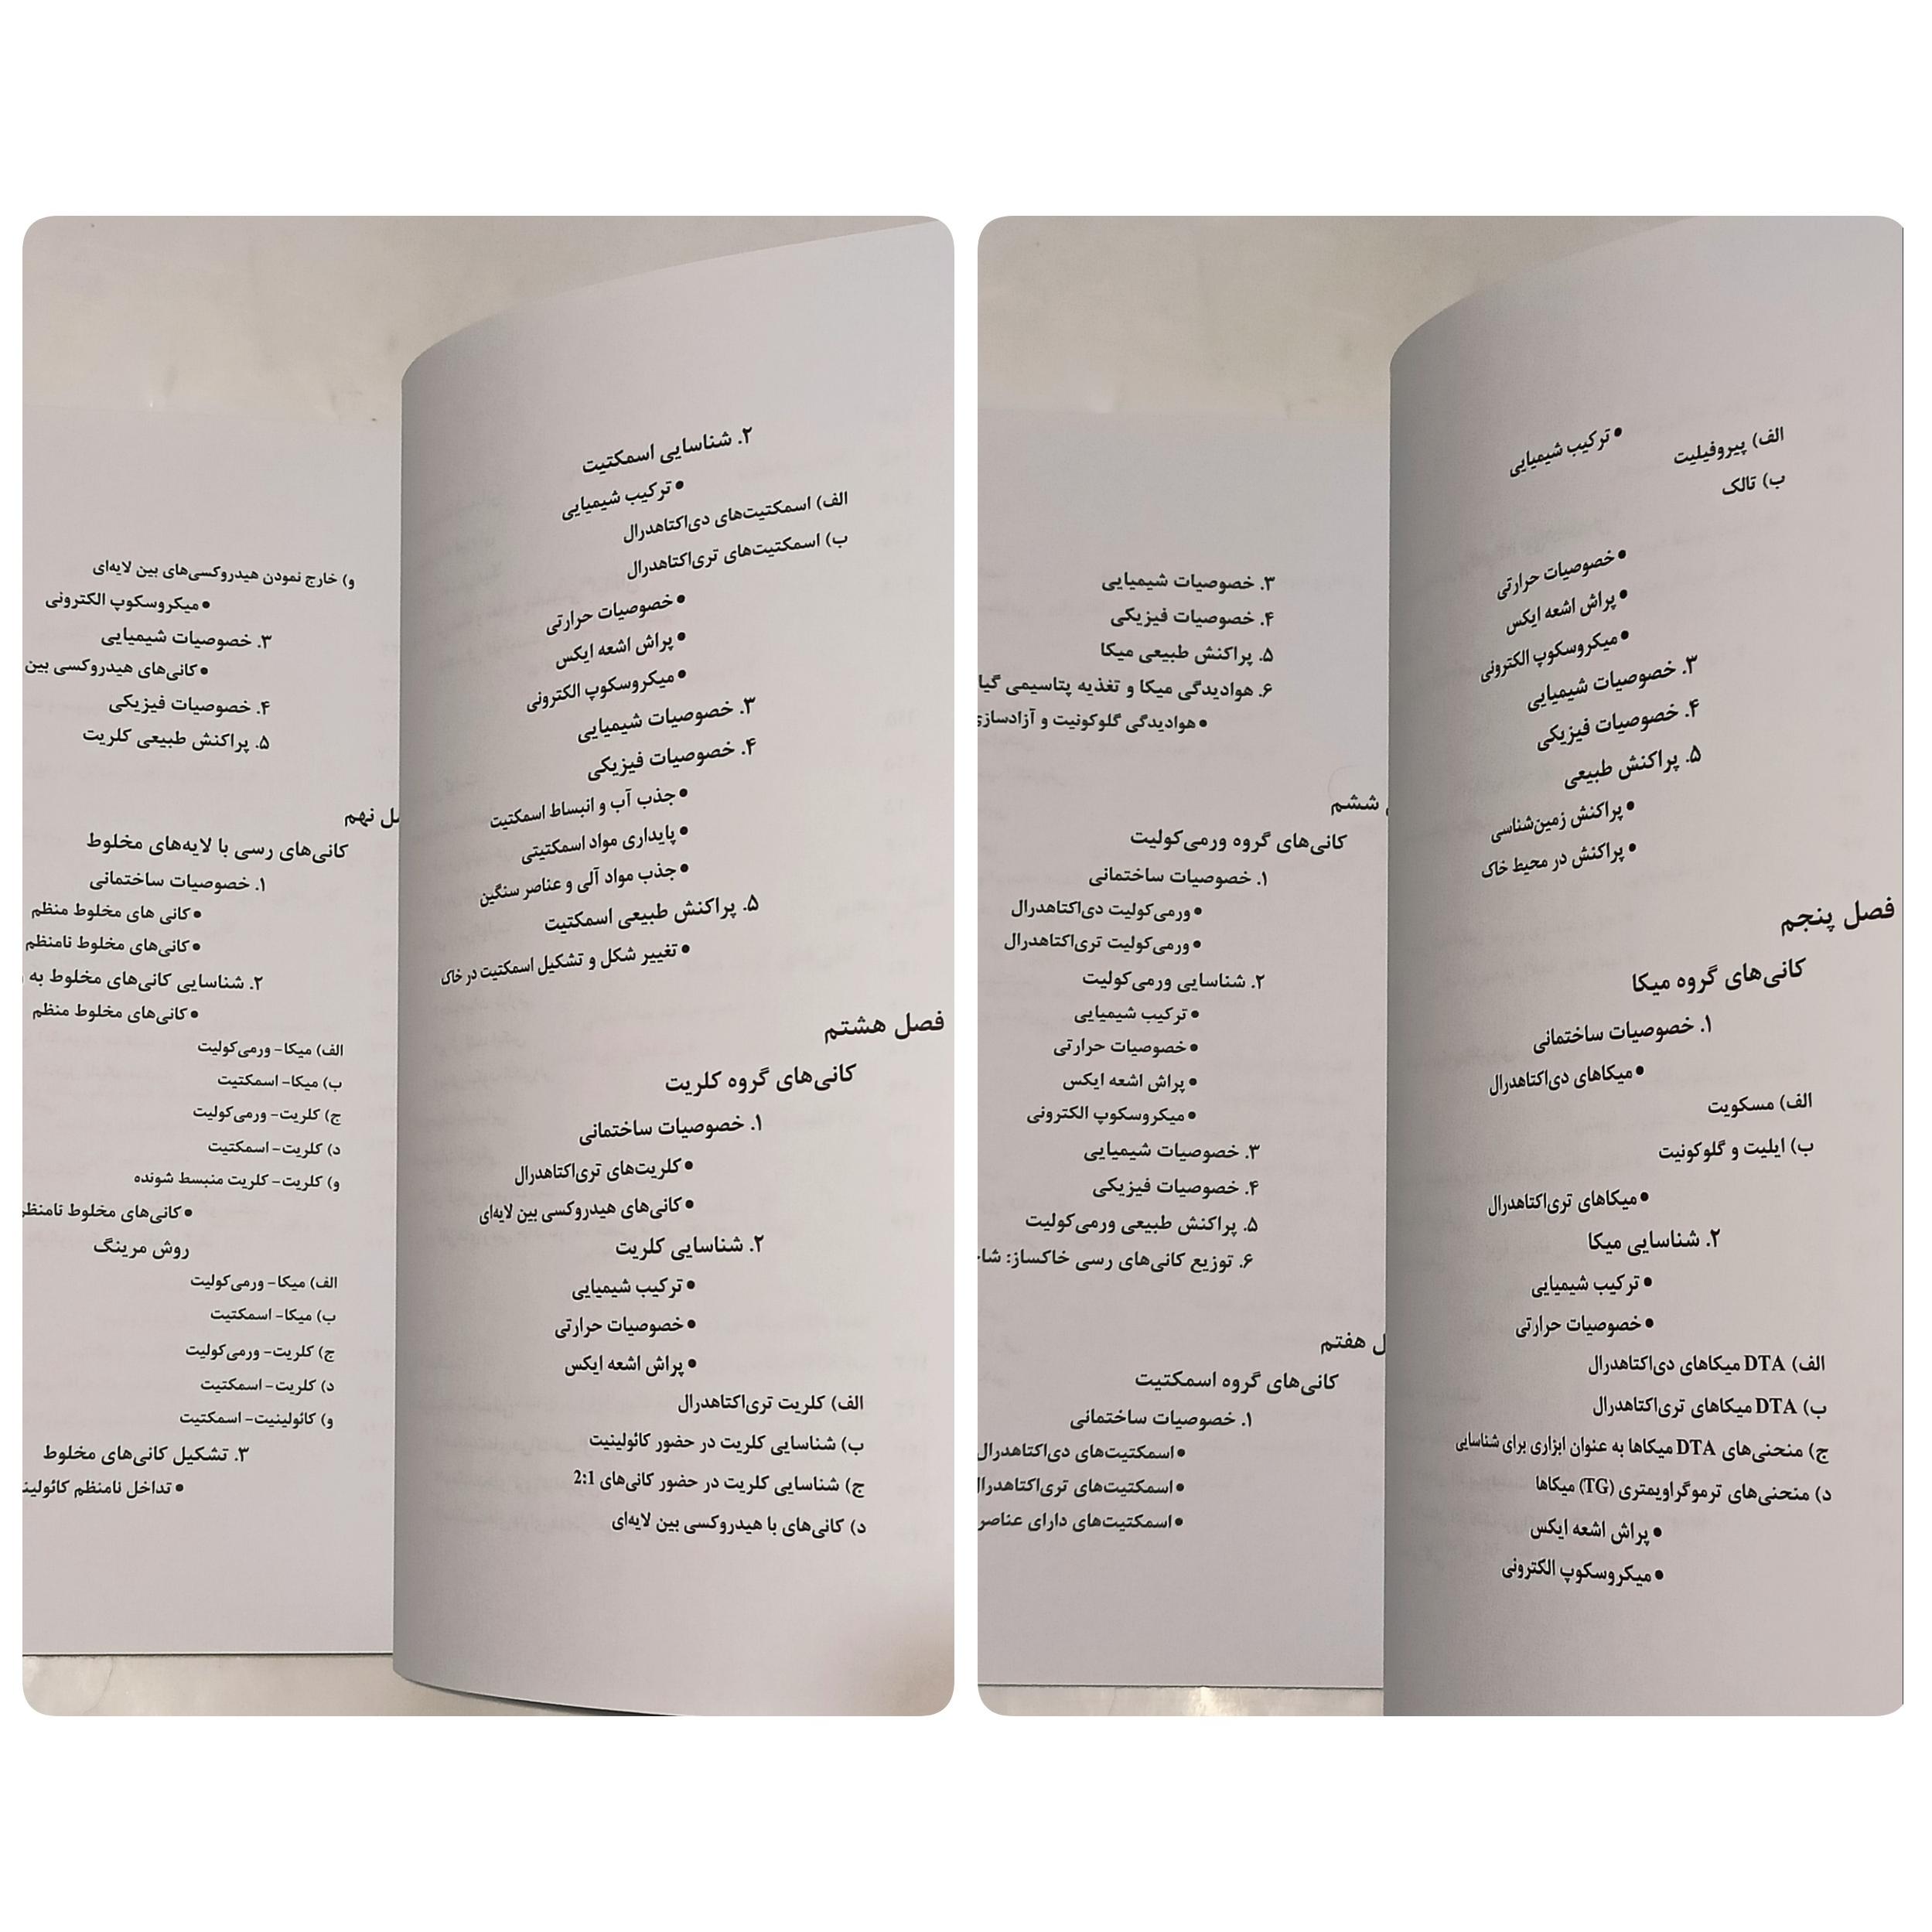 • ترکیب شیمیایی
الف) پیروفیلیت
ب) تالک
• خصوصیات حرارتی
• پراش اشعه ایکس
• میکروسکوپ الکترونی
۳. خصوصیات شیمیایی
۴. خصوصیات فیزیکی
۵. پراکنش طبیعی
• پراکنش زمین‌شناسی
• پراکنش در محیط خاک
فصل پنجم
کانی‌های گروه میکا
۱. خصوصیات ساختمانی
• میکاهای دی‌اکتاهدرال
الف) مسکویت
ب) ایلیت و گلوکونیت
• میکاهای تری‌اکتاهدرال
۲. شناسایی میکا
• ترکیب شیمیایی
• خصوصیات حرارتی
الف) DTA میکاهای دی‌اکتاهدرال
ب) DTA میکاهای تری‌اکتاهدرال
ج) منحنی‌های DTA میکاها به عنوان ابزاری برای شناسایی
د) منحنی‌های ترموگراویمتری (TG) میکاها
• پراش اشعه ایکس
• میکروسکوپ الکترونی
۳. خصوصیات شیمیایی
۴. خصوصیات فیزیکی
۵. پراکنش طبیعی میکا
۶. هوادیدگی میکا و تغذیه پتاسیمی
• هوادیدگی گلوکونیت و
ششم
کانی‌های گروه ورمی‌کولیت
۱. خصوصیات ساختمانی
• ورمی‌کولیت دی‌اکتاهدرال
• ورمی‌کولیت تری‌اکتاهدرال
۲. شناسایی ورمی‌کولیت
• ترکیب شیمیایی
• خصوصیات حرارتی
• پراش اشعه ایکس
• میکروسکوپ الکترونی
۳. خصوصیات شیمیایی
۴. خصوصیات فیزیکی
۵. پراکنش طبیعی ورمی‌کولیت
۶. توزیع کانی‌های رسی خاکساز:
هفتم
کانی‌های گروه اسمکتیت
۱. خصوصیات ساختمانی
• اسمکتیت‌های دی‌اکتاهدرال
• اسمکتیت‌های تری‌اکتاهدرال
• اسمکتیت‌های دارای عناصر
۲. شناسایی اسمکتیت
• ترکیب شیمیایی
الف) اسمکتیت‌های دی‌اکتاهدرال
ب) اسمکتیت‌های تری‌اکتاهدرال
• خصوصیات حرارتی
• پراش اشعه ایکس
• میکروسکوپ الکترونی
۳. خصوصیات شیمیایی
۴. خصوصیات فیزیکی
• جذب آب و انبساط اسمکتیت
• پایداری مواد اسمکتیتی
• جذب مواد آلی و عناصر سنگین
۵. پراکنش طبیعی اسمکتیت
• تغییر شکل و تشکیل اسمکتیت در خاک
فصل هشتم
کانی‌های گروه کلریت
۱. خصوصیات ساختمانی
• کلریت‌های تری‌اکتاهدرال
• کانی‌های هیدروکسی بین لایه‌ای
۲. شناسایی کلریت
• ترکیب شیمیایی
• خصوصیات حرارتی
• پراش اشعه ایکس
الف) کلریت تری‌اکتاهدرال
ب) شناسایی کلریت در حضور کائولینیت
ج) شناسایی کلریت در حضور کانی‌های 2:1
د) کانی‌های با هیدروکسی بین لایه‌ای
و) خارج نمودن هیدروکسی‌های بین لایه‌ای
• میکروسکوپ الکترونی
۳. خصوصیات شیمیایی
• کانی‌های هیدروکسی بین
۴. خصوصیات فیزیکی
۵. پراکنش طبیعی کلریت
نهم
کانی‌های رسی با لایه‌های مخلوط
۱. خصوصیات ساختمانی
• کانی های مخلوط منظم
• کانی‌های مخلوط نامنظم
۲. شناسایی کانی‌های مخلوط به
• کانی‌های مخلوط منظم
الف) میکا- ورمی‌کولیت
ب) میکا- اسمکتیت
ج) کلریت- ورمی‌کولیت
د) کلریت- اسمکتیت
و) کلریت- کلریت منبسط شونده
• کانی‌های مخلوط نامنظم
روش مرینگ
الف) میکا- ورمی‌کولیت
ب) میکا- اسمکتیت
ج) کلریت- ورمی‌کولیت
د) کلریت- اسمکتیت
و) کائولینیت- اسمکتیت
۳. تشکیل کانی‌های مخلوط
• تداخل نامنظم